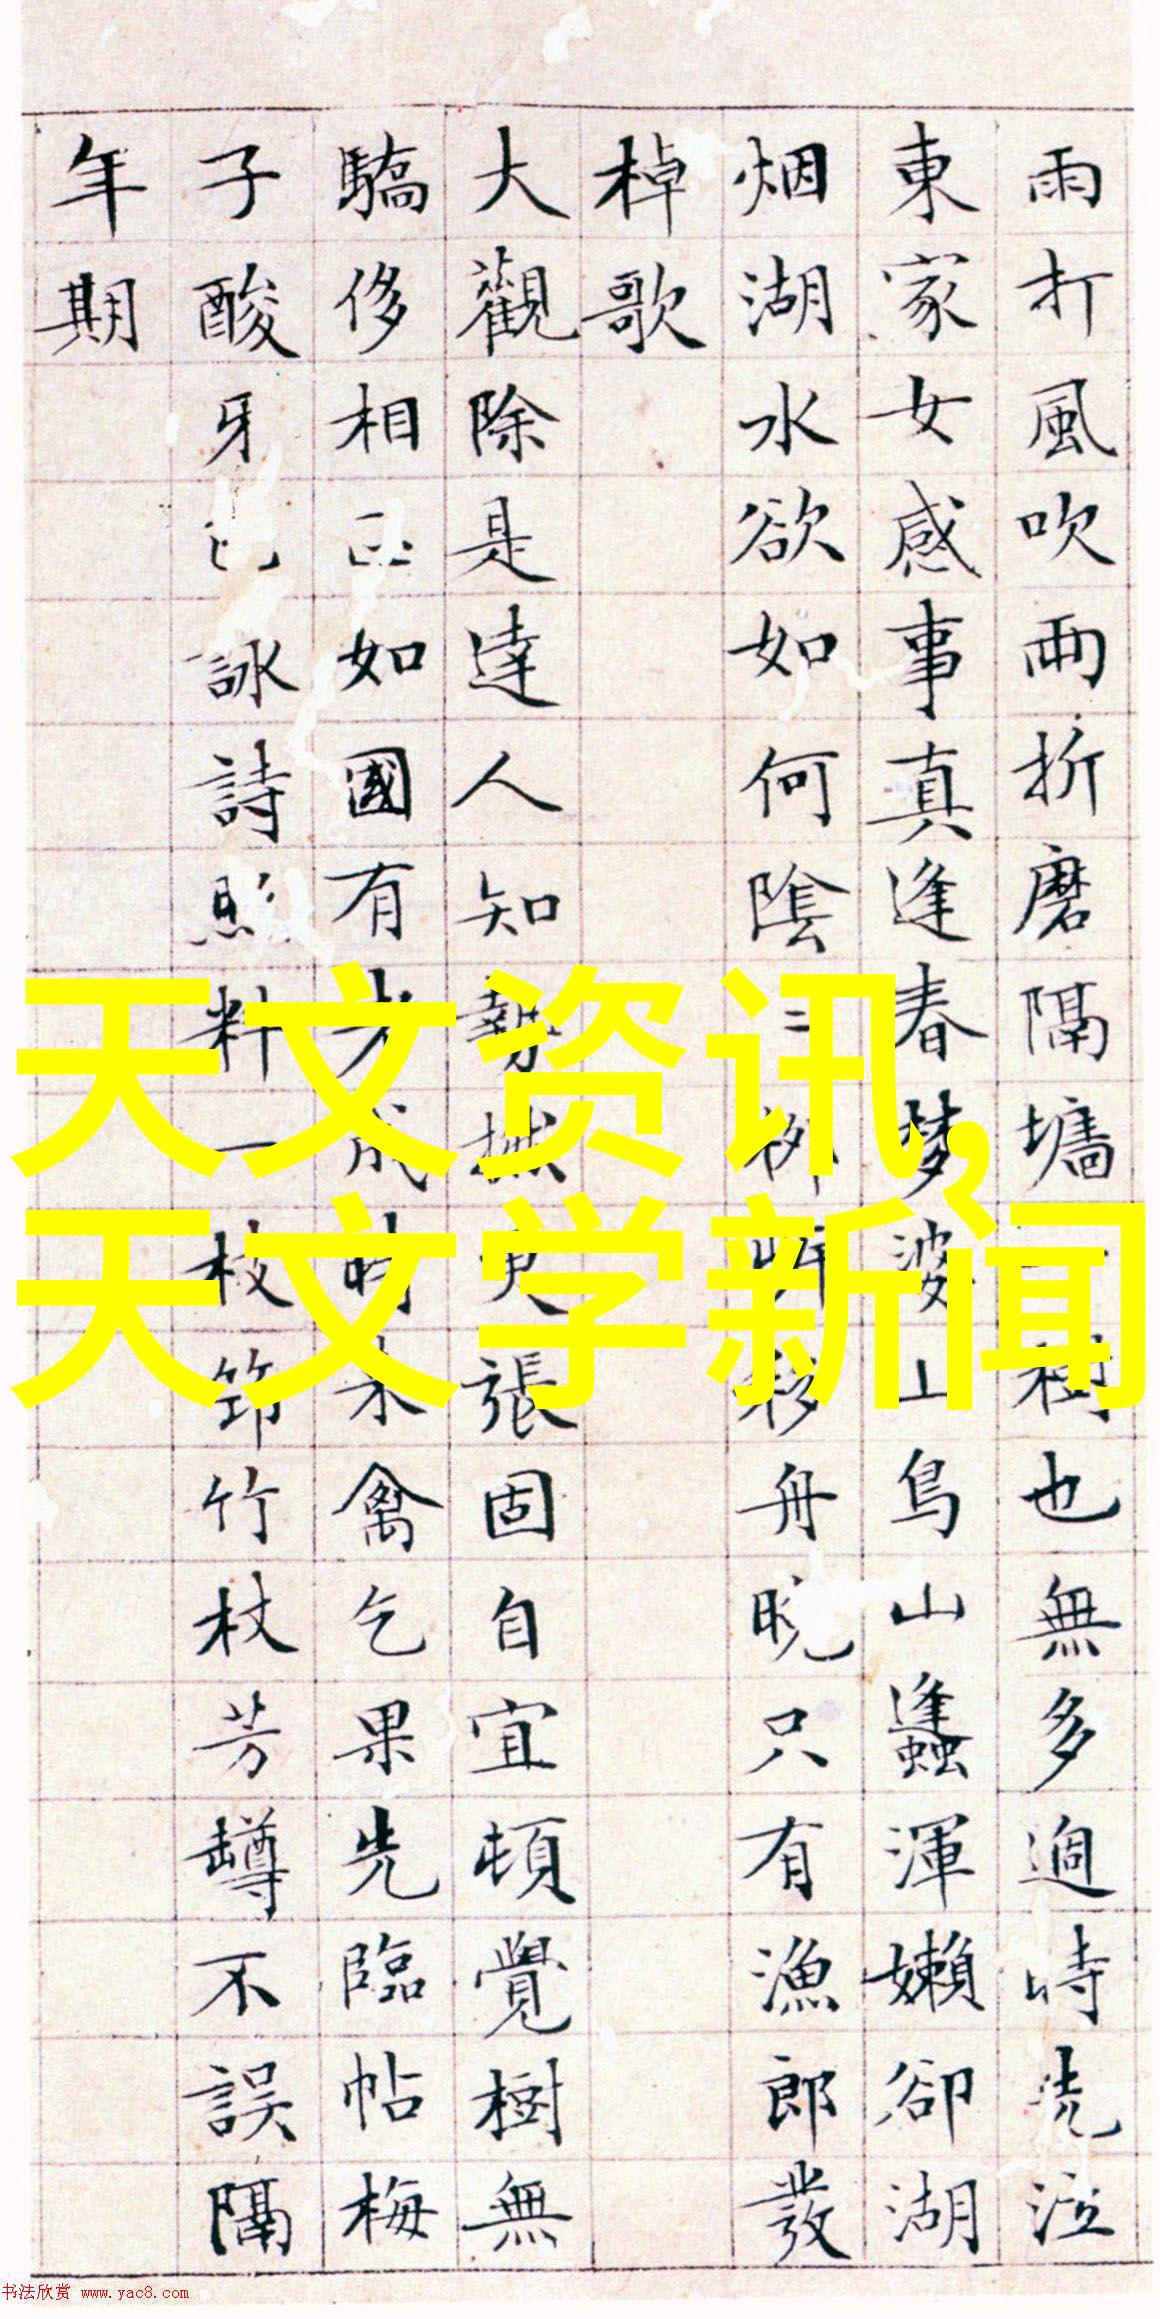 雨打風吹兩折磨隔墻樹也無多過時洗泣
東家女感事真逢春夢婆山鳥山蠭渾嬾卻湖
烟湖水欲如何陰柳彩舟晚只有漁郎發
棹歌
大觀除是達人知勢撼更張固自宜頓覺樹無
驕侈相正如國有老成時木禽乞果先臨帖梅
子酸牙詠詩照料一枝筇竹杖芳罇不誤隔
年期
天文资讯,
天文学新闻
书法欣赏 www.yac8.com